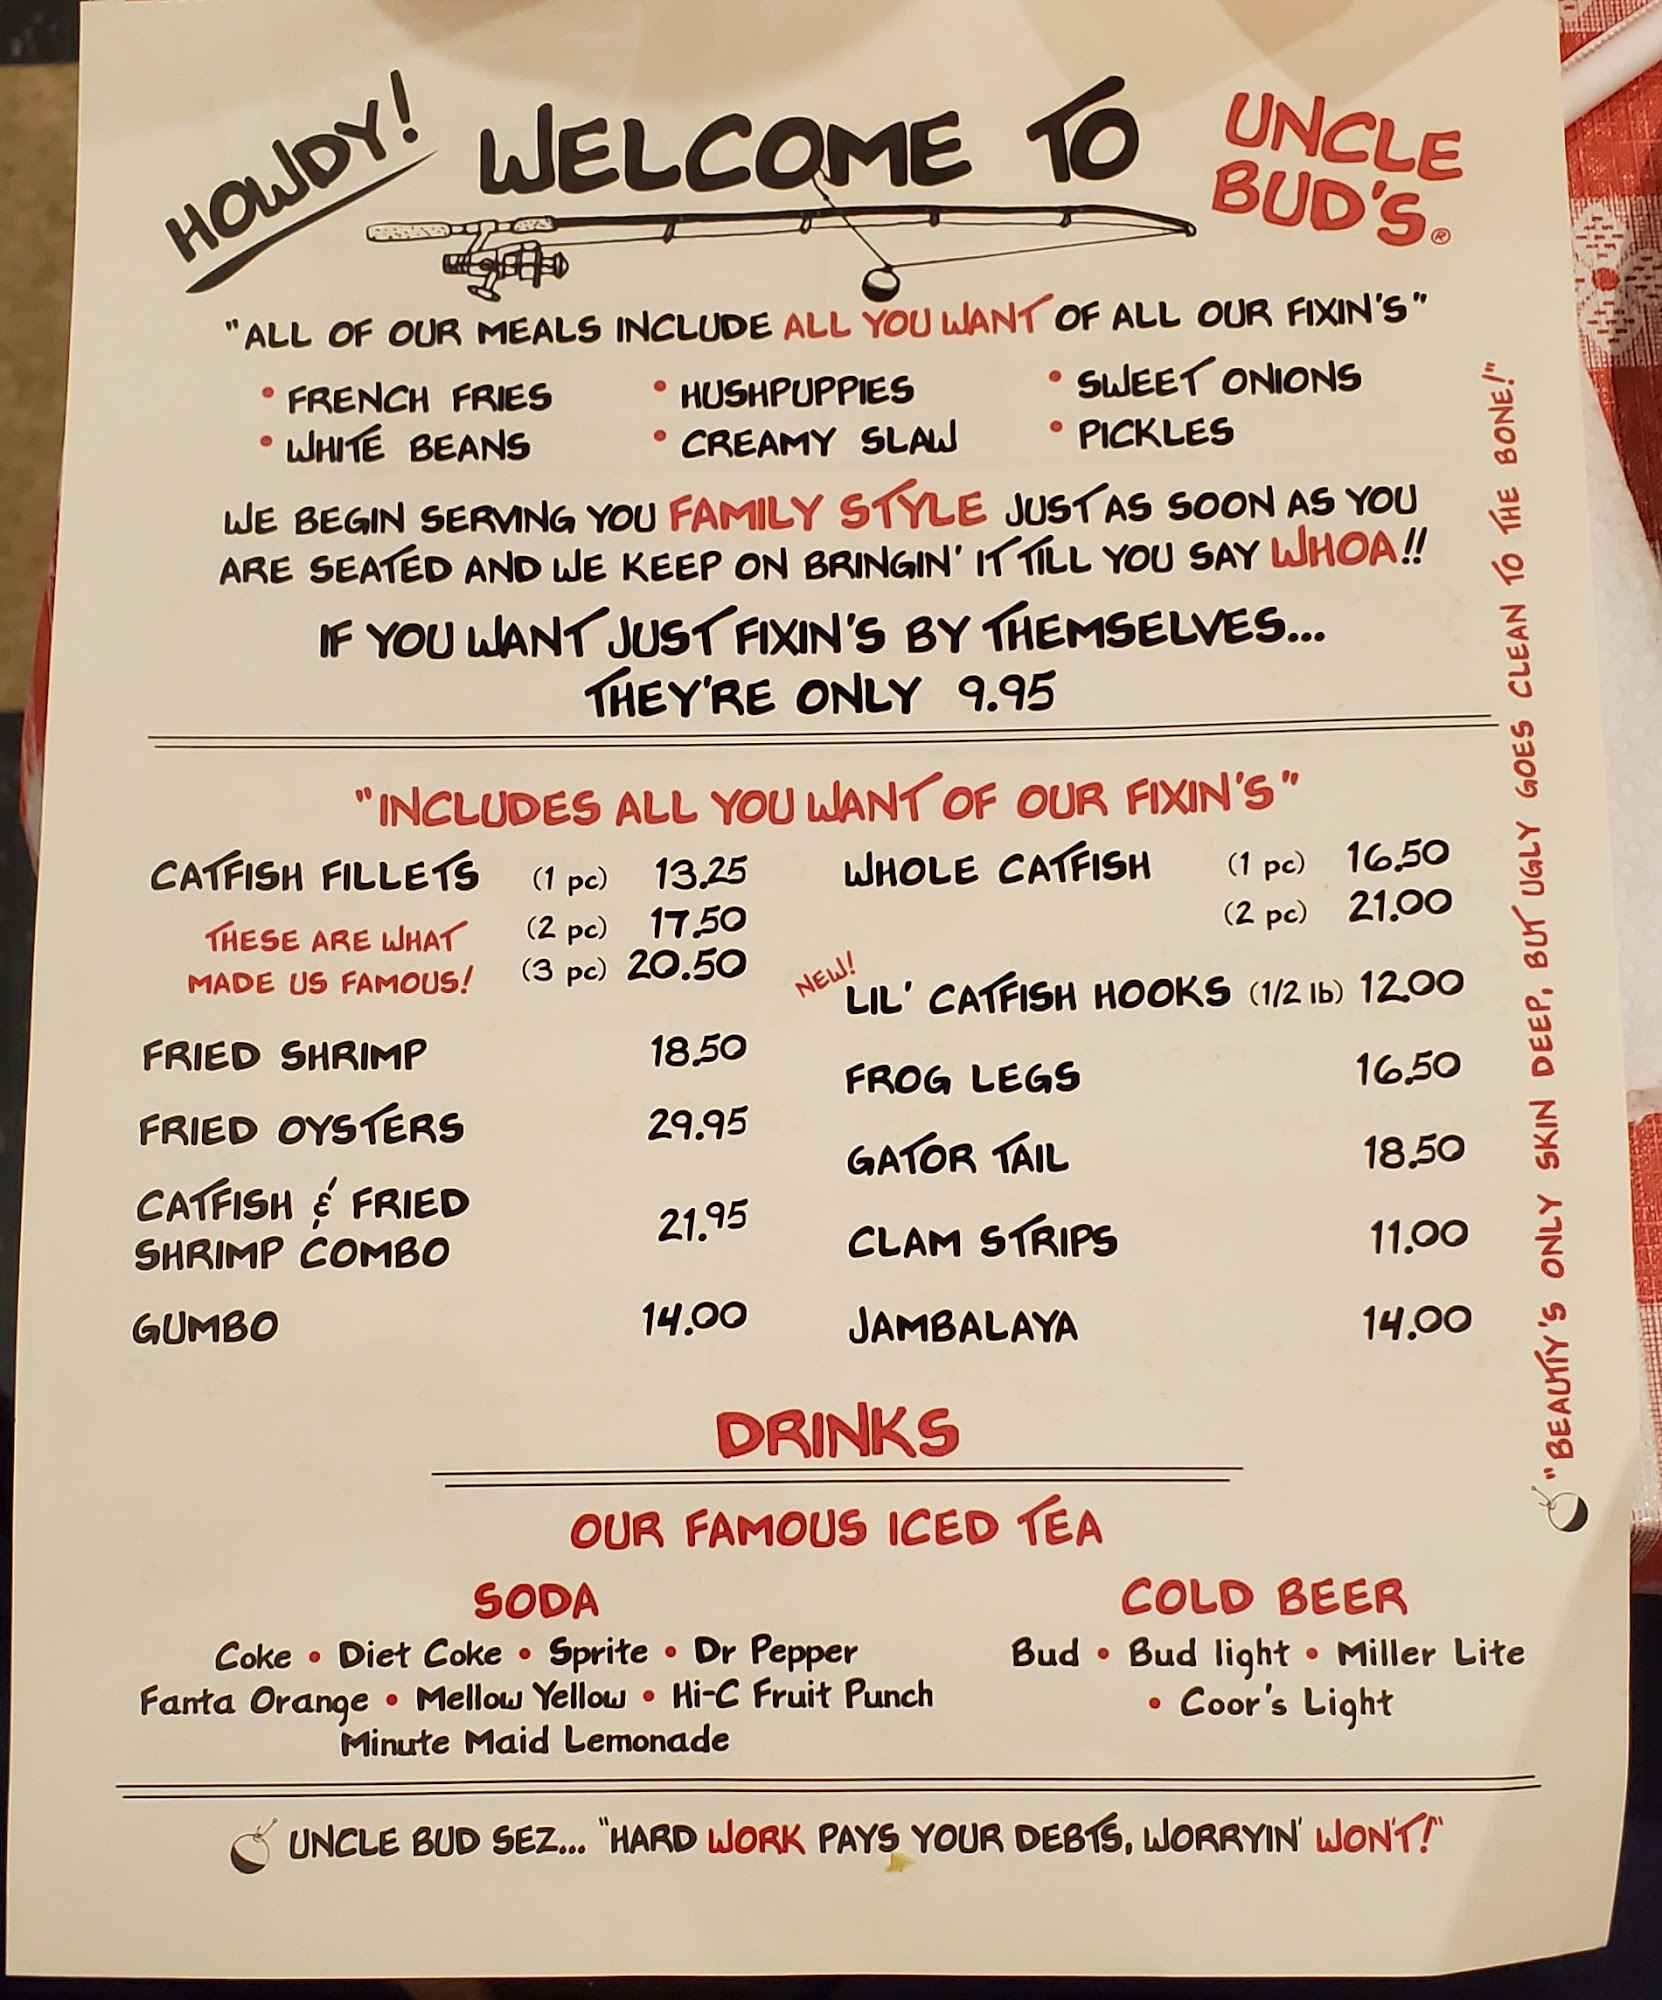 HOWDY! WELCOME TO UNCLE BUD'S®
"ALL OF OUR MEALS INCLUDE ALL YOU WANT OF ALL OUR FIXIN'S"
• FRENCH FRIES • HUSHPUPPIES • SWEET ONIONS
• WHITE BEANS • CREAMY SLAW • PICKLES
WE BEGIN SERVING YOU FAMILY STYLE JUST AS SOON AS YOU
ARE SEATED AND WE KEEP ON BRINGIN' IT TILL YOU SAY WHOA!!
IF YOU WANT JUST FIXIN'S BY THEMSELVES...
THEY'RE ONLY 9.95
"INCLUDES ALL YOU WANT OF OUR FIXIN'S"
CATFISH FILLETS (1 pc) 13.25
(2 pc) 17.50
THESE ARE WHAT
MADE US FAMOUS! (3 pc) 20.50
FRIED SHRIMP 18.50
FRIED OYSTERS 29.95
CATFISH & FRIED
SHRIMP COMBO 21.95
GUMBO 14.00
WHOLE CATFISH (1 pc) 16.50
(2 pc) 21.00
NEW! LIL' CATFISH HOOKS (1/2 lb) 12.00
FROG LEGS 16.50
GATOR TAIL 18.50
CLAM STRIPS 11.00
JAMBALAYA 14.00
"BEAUTY'S ONLY SKIN DEEP, BUT UGLY GOES CLEAN TO THE BONE!"
DRINKS
OUR FAMOUS ICED TEA
SODA
Coke • Diet Coke • Sprite • Dr Pepper
Fanta Orange • Mellow Yellow • Hi-C Fruit Punch
Minute Maid Lemonade
COLD BEER
Bud • Bud light • Miller Lite
• Coor's Light
UNCLE BUD SEZ... "HARD WORK PAYS YOUR DEBTS, WORRYIN' WON'T!"